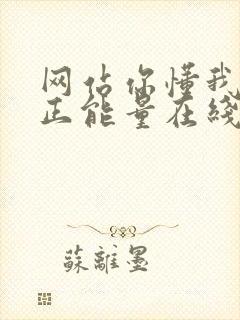 网站你懂我
正能量在线
蘇離墨